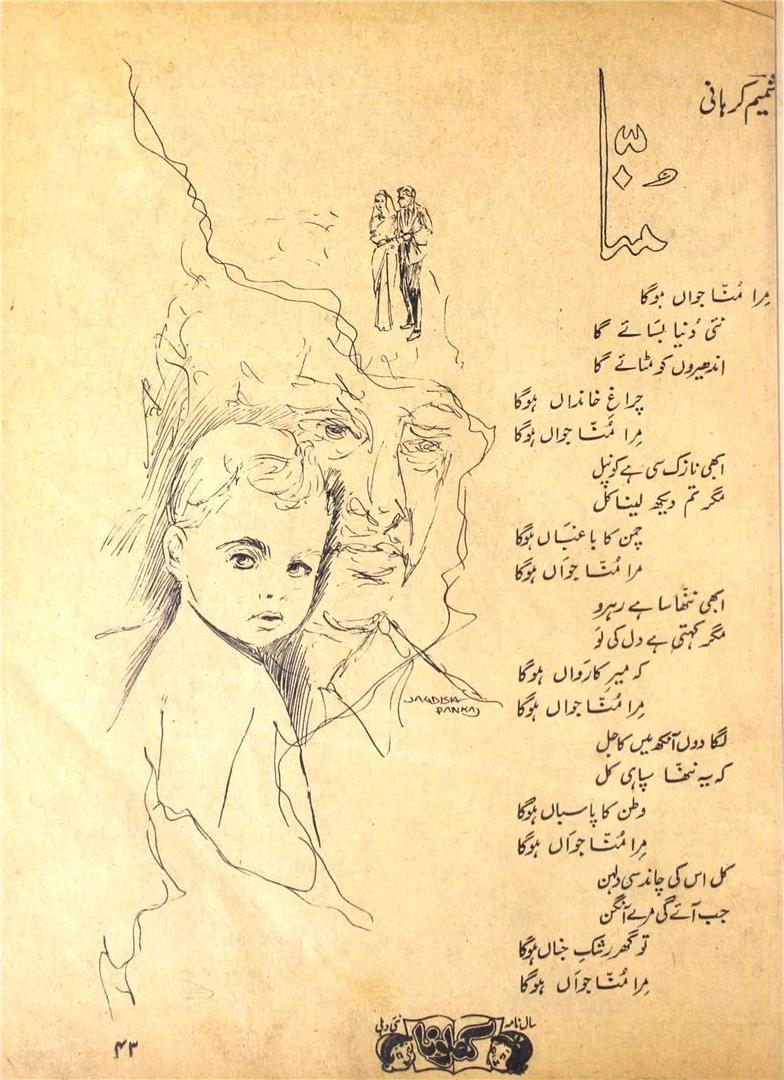 شمیم کرہانی
مُنّا
مِرا مُنّا جواں ہوگا
نئی دُنیا بسَائے گا
اندھیروں کو مٹائے گا
چراغِ خانداں ہوگا
مِرا مُنّا جواں ہوگا
ابھی نازک سی ہے کونپل
مگر تم دیکھ لینا کل
چمن کا باغبَاں ہوگا
مرا مُنّا جواَں ہوگا
ابھی ننھّا سا ہے رہرو
مگر کہتی ہے دل کی لَو
کہ میرِ کارَواں ہوگا
مِرا مُنّا جواں ہوگا
لگا دوں آنکھ میں کاجل
کہ یہ ننھّا سپاہی کل
وطن کا پاسباں ہوگا
مِرا مُنّا جواَں ہوگا
کل اس کی چاند سی دلہن
جب آئے گی مرے آنگن
تو گھر رشکِ جناں ہوگا
مِرا مُنّا جواَں ہوگا
JAGDISH
PANKAJ
سال نامہ کھلونا نئی دہلی
۴۳